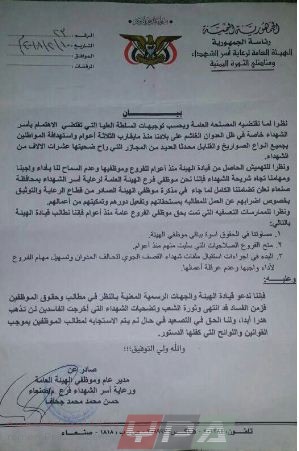 الجمهورية اليمنية
رئاسة الجمهورية
الهيئة العامة لرعاية أسر الشهداء
ومناضلي الثورة اليمنية
الرقم:
التاريخ:
الموافق:
المرفقات:
بيان
نظرا لما تقتضيه المصلحة العامة وبحسب توجيهات السلطة العليا التي تقتضي الاهتمام بأسر
الشهداء خاصة في ظل العدوان الغاشم على بلادنا منذ مايقارب الثلاثة أعوام واستهدافه المواطنين
بجميع انواع الصواريخ والقنابل محدثا العديد من المجازر التي راح ضحيتها عشرات الالاف من
الشهداء.
ونظرا للتهميش الحاصل من قيادة الهيئة منذ أعوام للفروع وموظفيها وعدم السماح لنا بأداء واجبنا
ومهامنا تجاه شريحة الشهداء فإننا نحن موظفي فرع الهيئة العامة لرعاية أسر الشهداء بمحافظة
صنعاء نعلن تضامننا الكامل لما جاء في مذكرة موظفي الهيئة الصادر من قطاع الرعاية والتوثيق
بخصوص اضرابهم عن العمل للمطالبه بمستحقاتهم وتفعيل دورهم وتمكينهم من أعمالهم.
ونظرا للممارسات التعسفيه التي تمت بحق موظفي الفروع عامة منذ أعوام فإننا نطالب قيادة الهيئة
بالتالي:
١. مساواتنا في الحقوق أسوة بباقي موظفي الهيئة.
٢. منح الفروع الصلاحيات التي سلبت منهم منذ أعوام.
٣. البدء في اجراءات استقبال ملفات شهداء القصف الجوي لتحالف العدوان وتسهيل مهام الفروع
لأداء واجبها وعدم عرقلة أعمالها.
وعليه:
فإننا ندعو قيادة الهيئة والجهات الرسمية المعنية بالنظر في مطالب وحقوق الموظفين
فزمن الفساد قد انتهى وثورة الشعب وتضحيات الشهداء التي أخرجت الفاسدين لن تذهب
هدرا أبدا، ولنا الحق في التصعيد في حال لم يتم الاستجابه لمطالب الموظفين بموجب
القوانين واللوائح التي كفلها الدستور.
والله ولي التوفيق،،،
صادر عن
مدير عام وموظفي الهيئة العامة
لرعاية أسر الشهداء فرع م/صنعاء
حسن محمد محمد جحاف
صنعاء